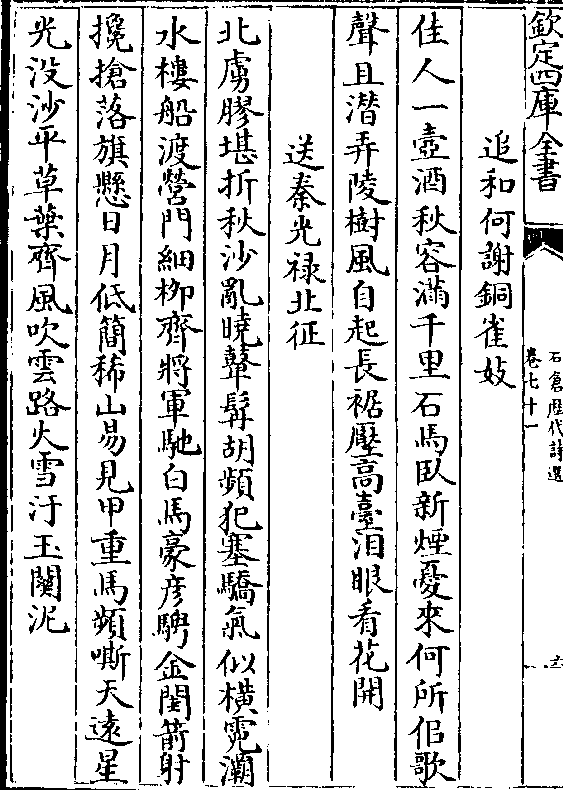 欽定四庫全書
石倉歷代詩選
卷七十一
六
追和何謝銅雀妓
佳人一壺酒秋容滿千里石馬臥新煙憂來何所佀歌
聲且潛弄陵樹風自起長裾壓高臺淚眼看花開
送秦光祿北征
北虜膠堪折秋沙亂曉鼙髯胡頻犯塞驕氣似橫霓灞
水樓船渡營門細栁齊將軍馳白馬豪彦騁金閨箭射
攙搶落旗懸日月低簡稀山易見甲重馬頻嘶天遠星
光没沙平草葉齊風吹雲路火雪汙玉關泥